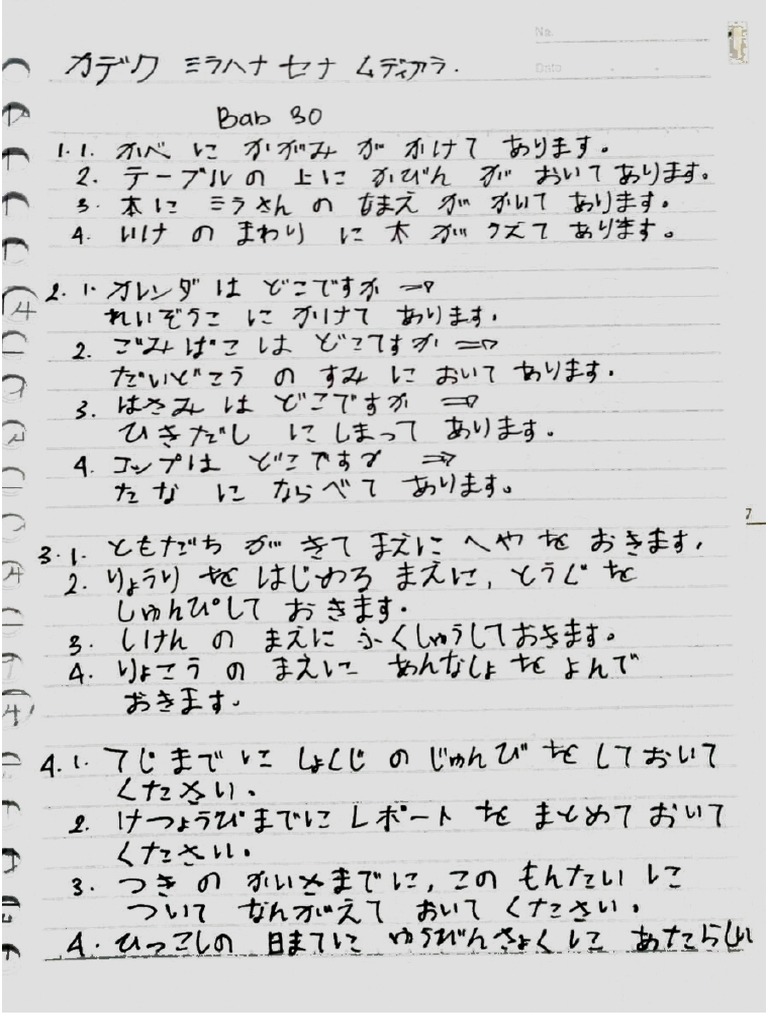 No.
Date
カデク ミラハナ セナ ムディアラ.
Bab 30
1. 1. かべ に かがみ が かけて あります。
2. テーブル の 上に かびん が おいて あります。
3. 本に ミラさん の なまえ が かいて あります。
4. いけ の まわり に 木 が うえて あります。
2. 1. カレンダ は どこですか ⇒
れいぞうこ に かけて あります.
2. ごみばこ は どこてすか ⇒
だいどこう の すみ に おいて あります.
3. はさみ は どこですか ⇒
ひきだし に しまって あります.
4. コップは どこですか ⇒
たな に ならべて あります。
3. 1. ともだち が きて まえに へや を おきます.
2. りょうり を はじめる まえに, どうぐ を
しゅんぴして おきます.
3. しけん の まえに ふくしゅうしておきます。
4. りょこう の まえに あんなしょ を よんで
おきます.
4. 1. てじ までに しょくじ の じゅんび を しておいて
くたさい.
2. けつょうびまでに レポート を まとめて おいて
くたさい.
3. つぎ の かいきまでに, この もんたい に
ついて なんがえて おいて くたさい.
4. ひっこしの 日まてに ゆうびんきょくに あたらしい
7